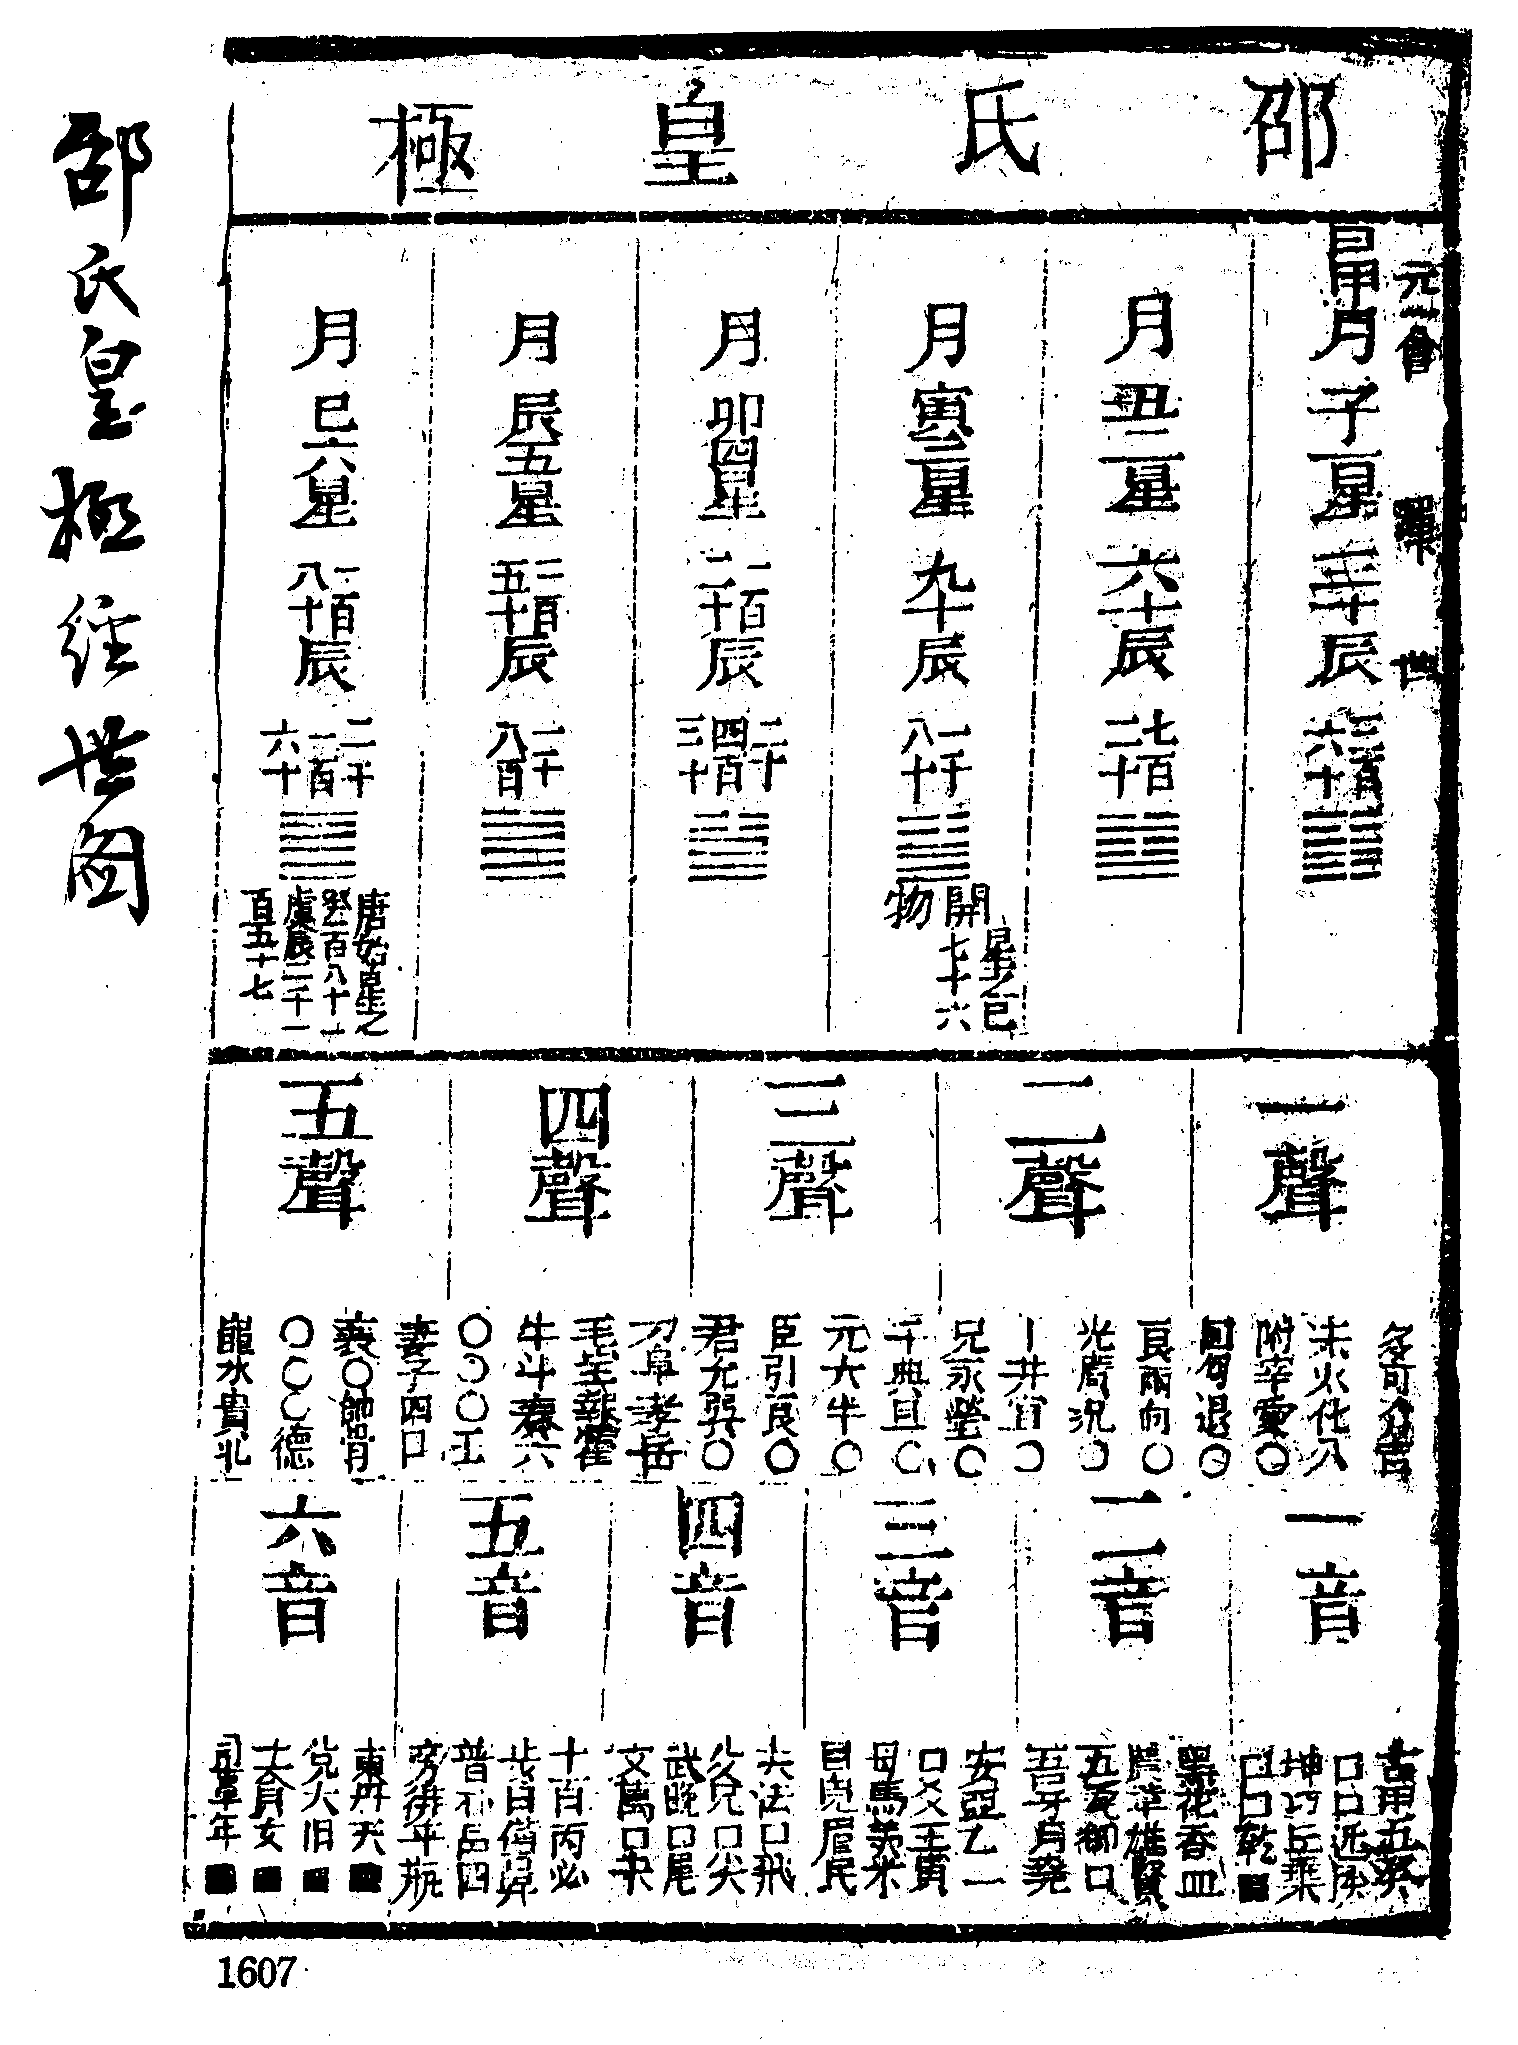 邵氏皇極
元 會 運 世
日甲月子一星三十辰三百六十
月丑二星六十辰七百二十
月寅三星九十辰一千八十
開物
星之巳七十六
月卯四星一百二十辰一千四百三十
月辰五星一百五十辰一千八百
月巳六星一百八十辰二千一百六十
唐始星之癸一百八十一虞辰二千一百五十七
一聲
多可介舌
禾火化八
開宰愛〇
回每退〇
二聲
良兩向〇
光廣況〇
丁井亘〇
兄永瑩〇
三聲
千典旦〇
元犬半〇
臣引艮〇
君允巽〇
四聲
刀早孝岳
毛寶報霍
牛斗奏六
〇〇〇玉
五聲
妻子四日
衰〇帥骨
〇〇〇德
龜水貴北
一音
古甲九癸
口口近揆
坤巧丘棄
口口乾■
二音
黑花香血
黃華雄賢
五瓦仰口
吾牙月堯
三音
安亞乙一
口爻王寅
母馬美米
目皃眉民
四音
夫法口飛
父凡口吠
武晚口尾
文萬口未
五音
卜百丙必
步白備鼻
普朴品匹
旁排平瓶
六音
東丹帝■
兌大弟■
土貪天■
同覃田■
邵氏皇極經世圖
1607